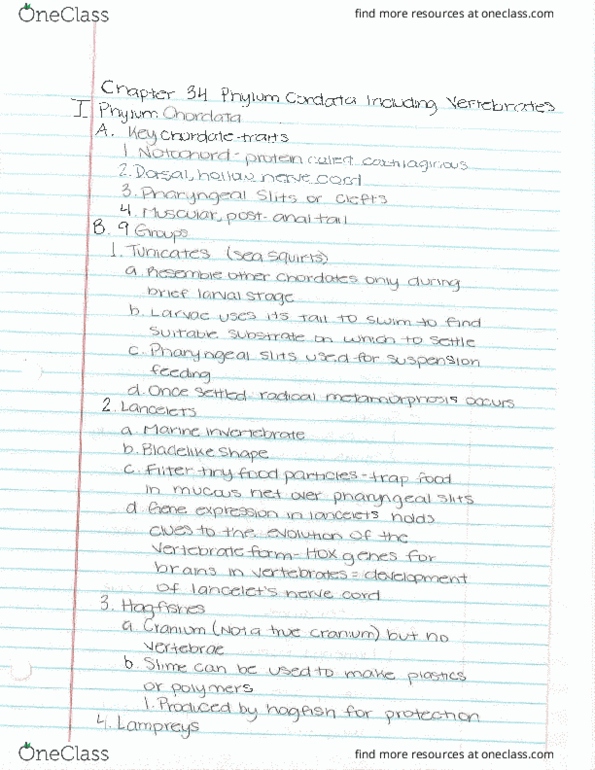 OneClass
find more resources at oneclass.com
Chapter 34 Phylum Cordata Including Vertebrates
I Phylum Chordata
A. Key chordate traits
1 Notochord - protein called
2. Dorsal, hollow nerve cord
3. Pharyngeal Slits or clefts
4. Muscular, post-anal tail
B. 9 Groups
1. Tunicates (sea squirts)
a Resemble other chordates only during
brief larval stage
b. Larvae uses its tail to swim to find
suitable substrate on which to settle
c. Pharyngeal slits used for suspension
feeding
d. Once settled-radical metamorphosis occurs
2. Lancelets
a. Marine invertebrate
b. Bladelike shape
c. Filter tiny food particles - trap food
in mucous net over pharyngeal slits
d. Gene expression in lancelets holds
clues to the evolution of the
vertebrate form - HOX genes for
brains in vertebrates = development
of lancelet's nerve cord
3. Hagfishes
a. Cranium (Not a true cranium) but no
vertebrae
b. Slime can be used to make plastics
or polymers
1. Produced by hagfish for protection
4. Lampreys
OneClass
find more resources at oneclass.com